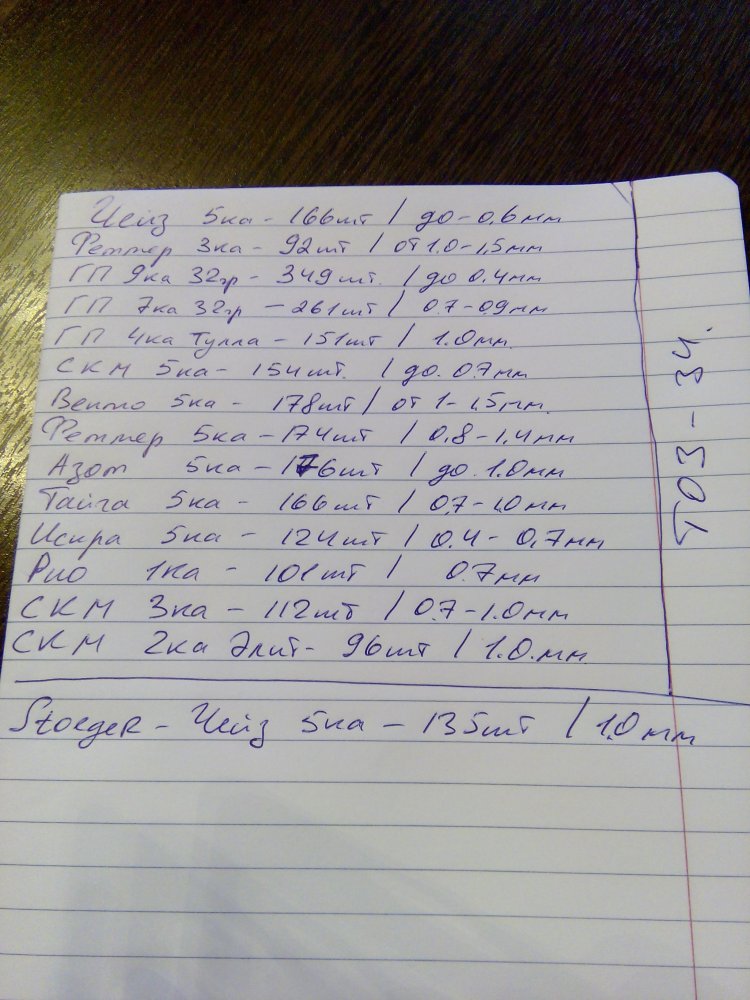 Чейз 5ка - 166шт / до - 0,6мм
Феттер 3ка - 92шт / от 1.0 - 1,5мм
ГП 9ка 32гр - 349шт. / до 0.4мм
ГП 7ка 32гр - 261шт / 0.7 - 0.9мм
ГП 4ка Тулла - 151шт / 1.0мм
СКМ 5ка - 154шт. / до. 0.7мм
Венто 5ка - 178шт / от 1 - 1,5мм.
Феттер 5ка - 174шт / 0,8 - 1,4мм
Азот 5ка - 176шт / до 1.0мм
Тайга 5ка - 166шт / 0,7 - 1,0мм
Искра 5ка - 124шт / 0.4 - 0,7мм
Рио 1ка - 101шт / 0.7мм
СКМ 3ка - 112шт / 0.7 - 1.0мм
СКМ 2ка Элит - 96шт / 1.0.мм
ТОЗ - 34.
Stoeger - Чейз 5ка - 135шт / 1.0мм